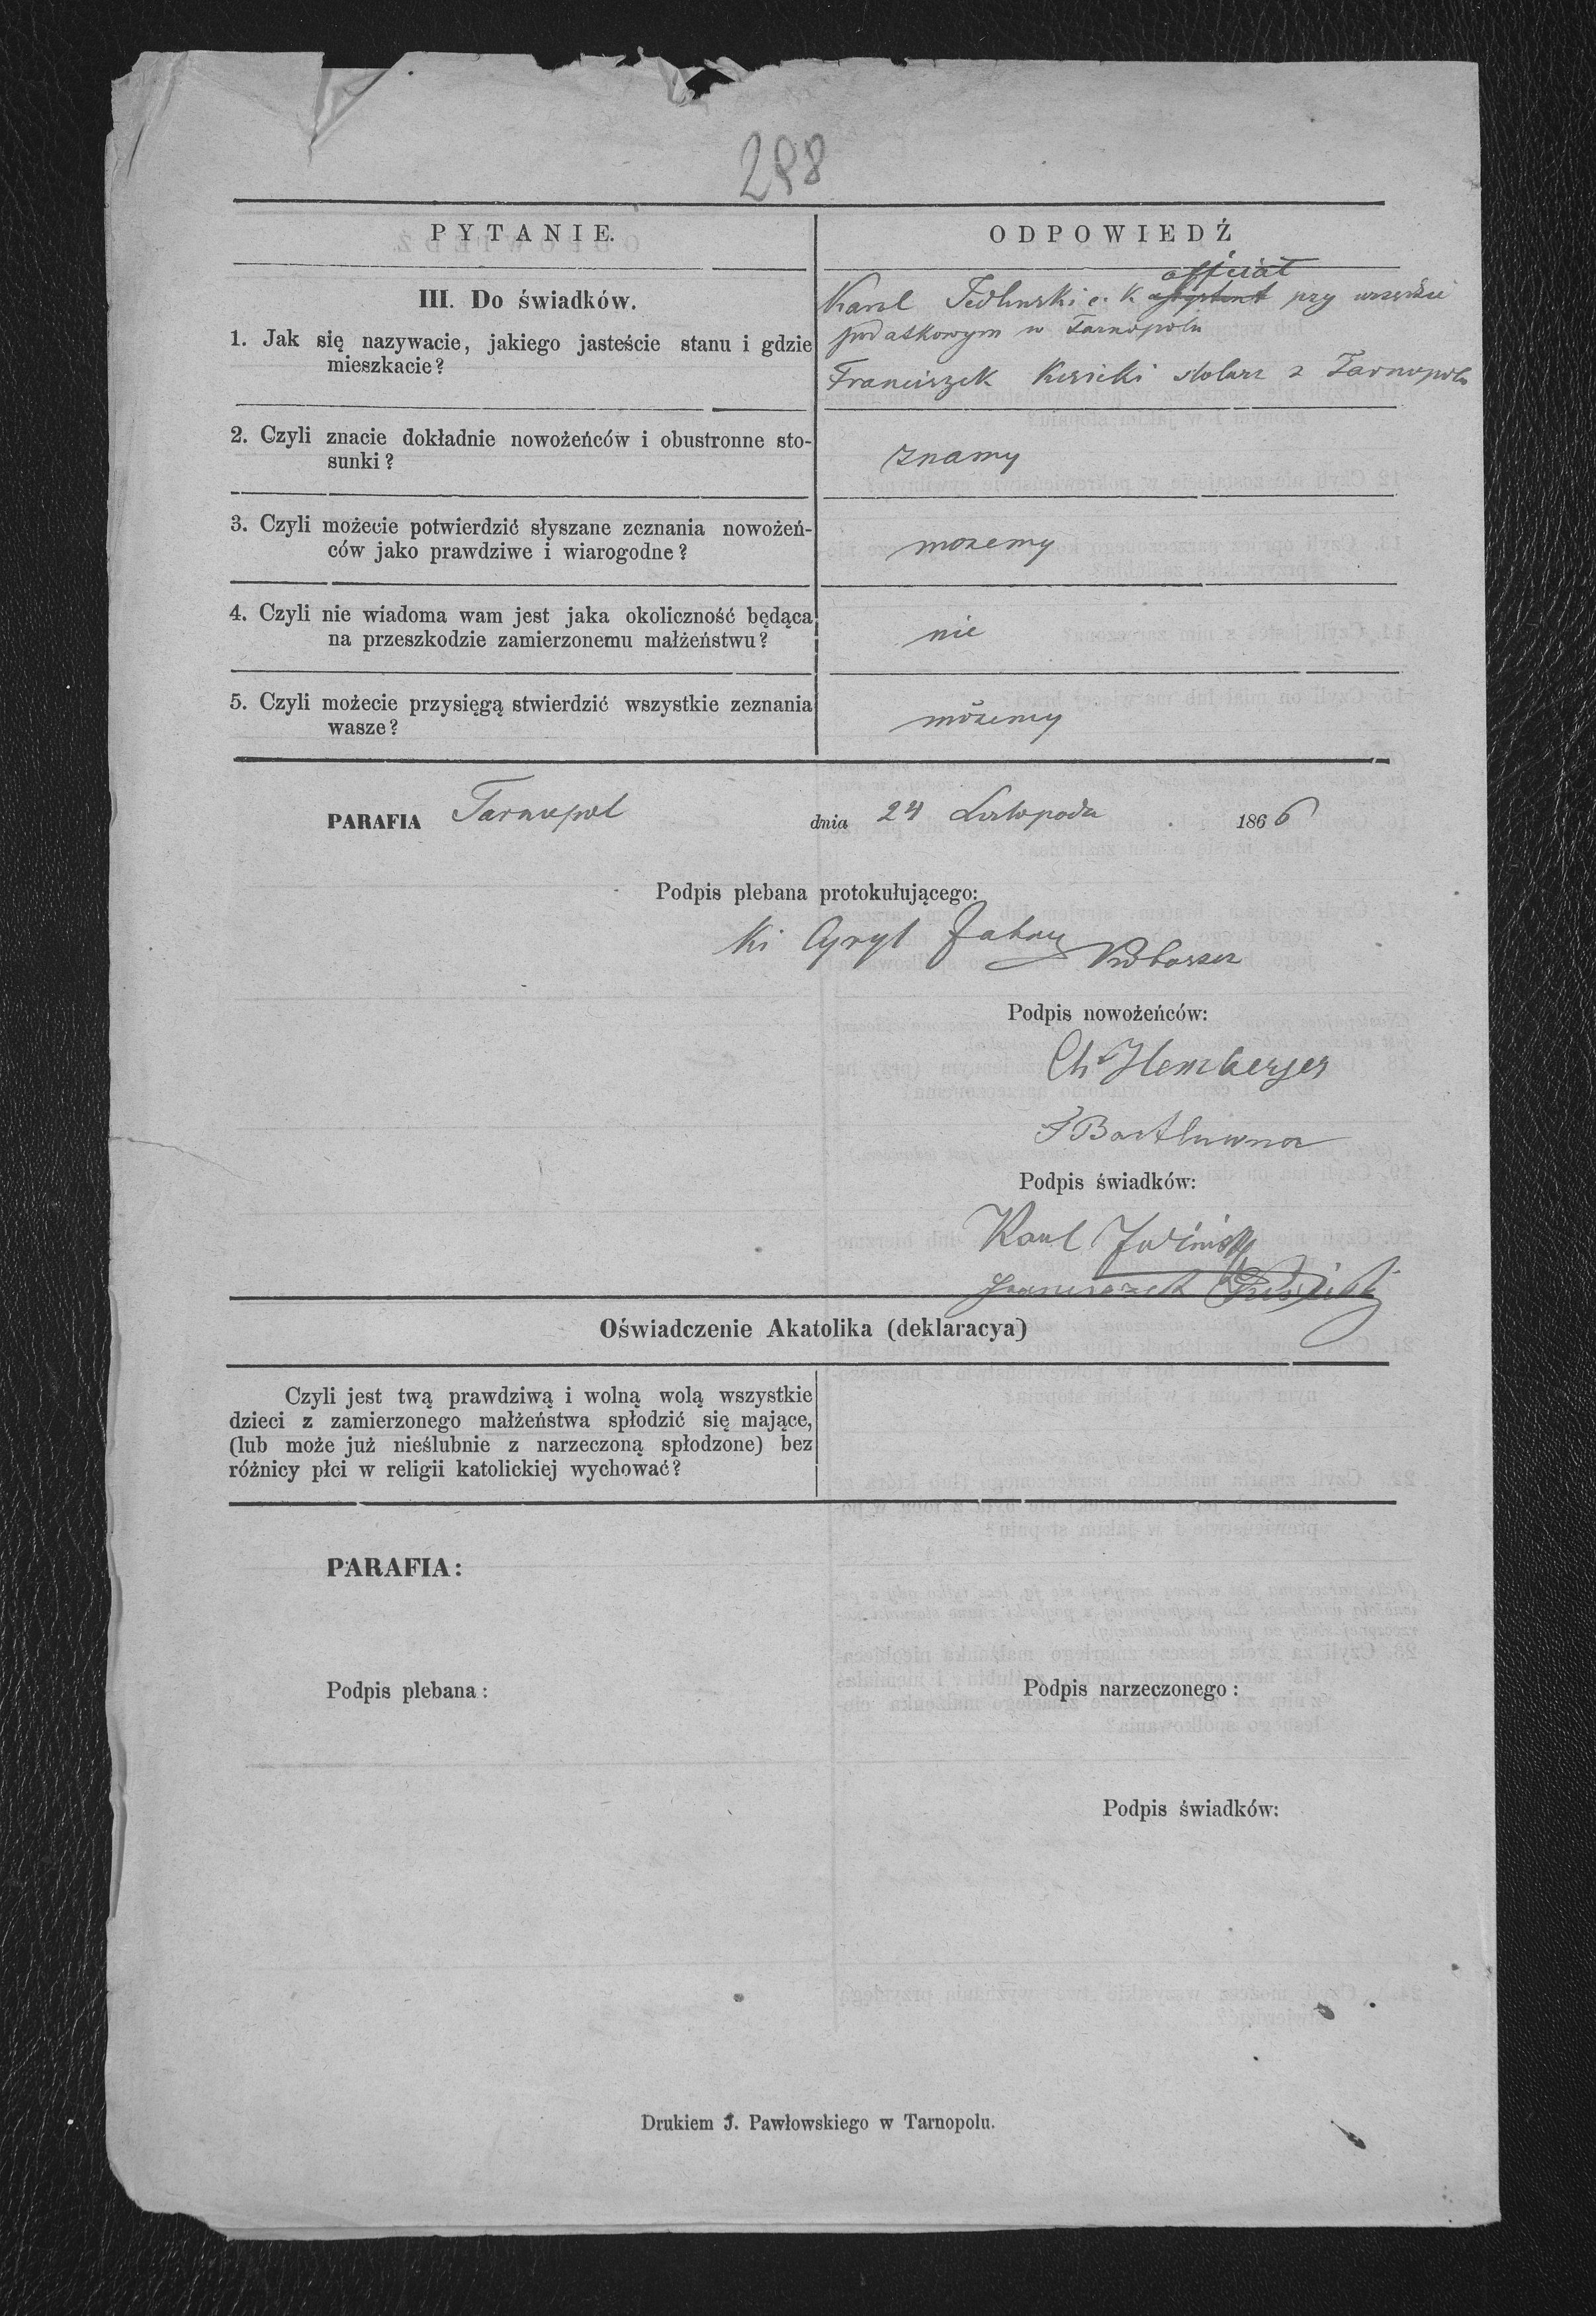 288
PYTANIE.
ODPOWIEDŹ
III. Do świadków.
1. Jak się nazywacie, jakiego jasteście stanu i gdzie
mieszkacie?
official
Karol c. k. assystent przy urzędzie
podatkowym w Tarnopolu
Franciszek stolarz z Tarnopola
2. Czyli znacie dokładnie nowożeńców i obustronne sto-
sunki?
znamy
3. Czyli możecie potwierdzić słyszane zeznania nowożeń-
ców jako prawdziwe i wiarogodne?
mozemy
4. Czyli nie wiadoma wam jest jaka okoliczność będąca
na przeszkodzie zamierzonemu małżeństwu?
nie
5. Czyli możecie przysięgą stwierdzić wszystkie zeznania
wasze?
możemy
PARAFIA Tarnopol dnia 24 Listopada 1866
Podpis plebana protokułującego:
Cyryl
Podpis nowożeńców:
Ch Hemberger
Podpis świadków:
Karol
Franciszek
Oświadczenie Akatolika (deklaracya)
Czyli jest twą prawdziwą i wolną wolą wszystkie
dzieci z zamierzonego małżeństwa spłodzić się mające,
(lub może już nieślubnie z narzeczoną spłodzone) bez
różnicy płci w religii katolickiej wychować?
PARAFIA:
Podpis plebana:
Podpis narzeczonego:
Podpis świadków:
Drukiem J. Pawłowskiego w Tarnopolu.